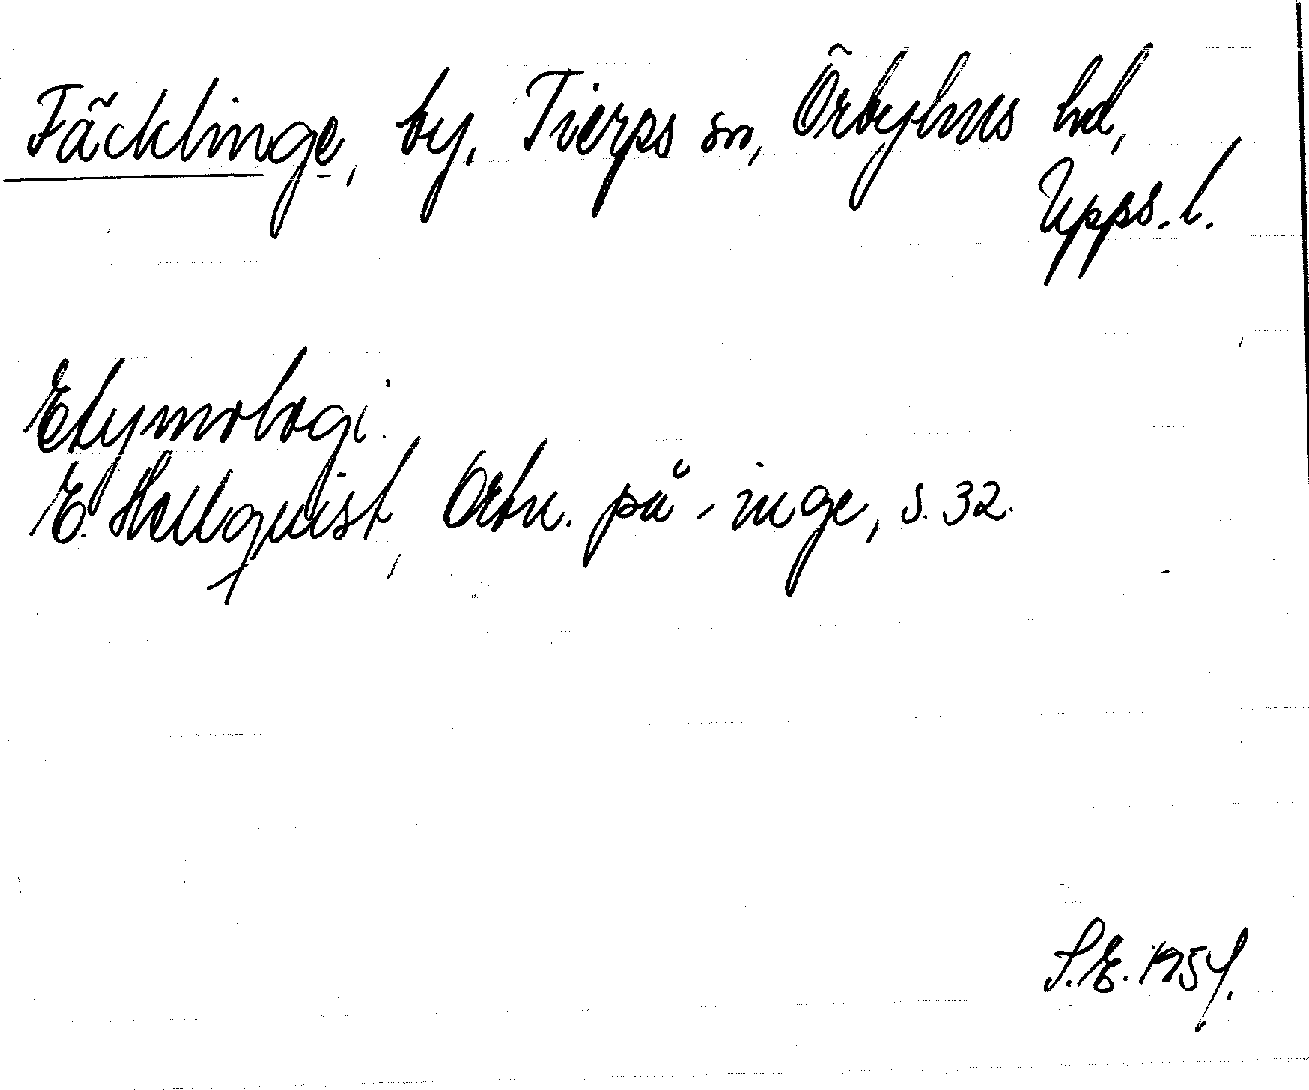 Fäcklinge, by, Tierps sn, Örbyhus hd,
Upps. l.
Etymologi.
E. Hellquist, Ortn. på -inge, s. 32.
S.E. 1954.